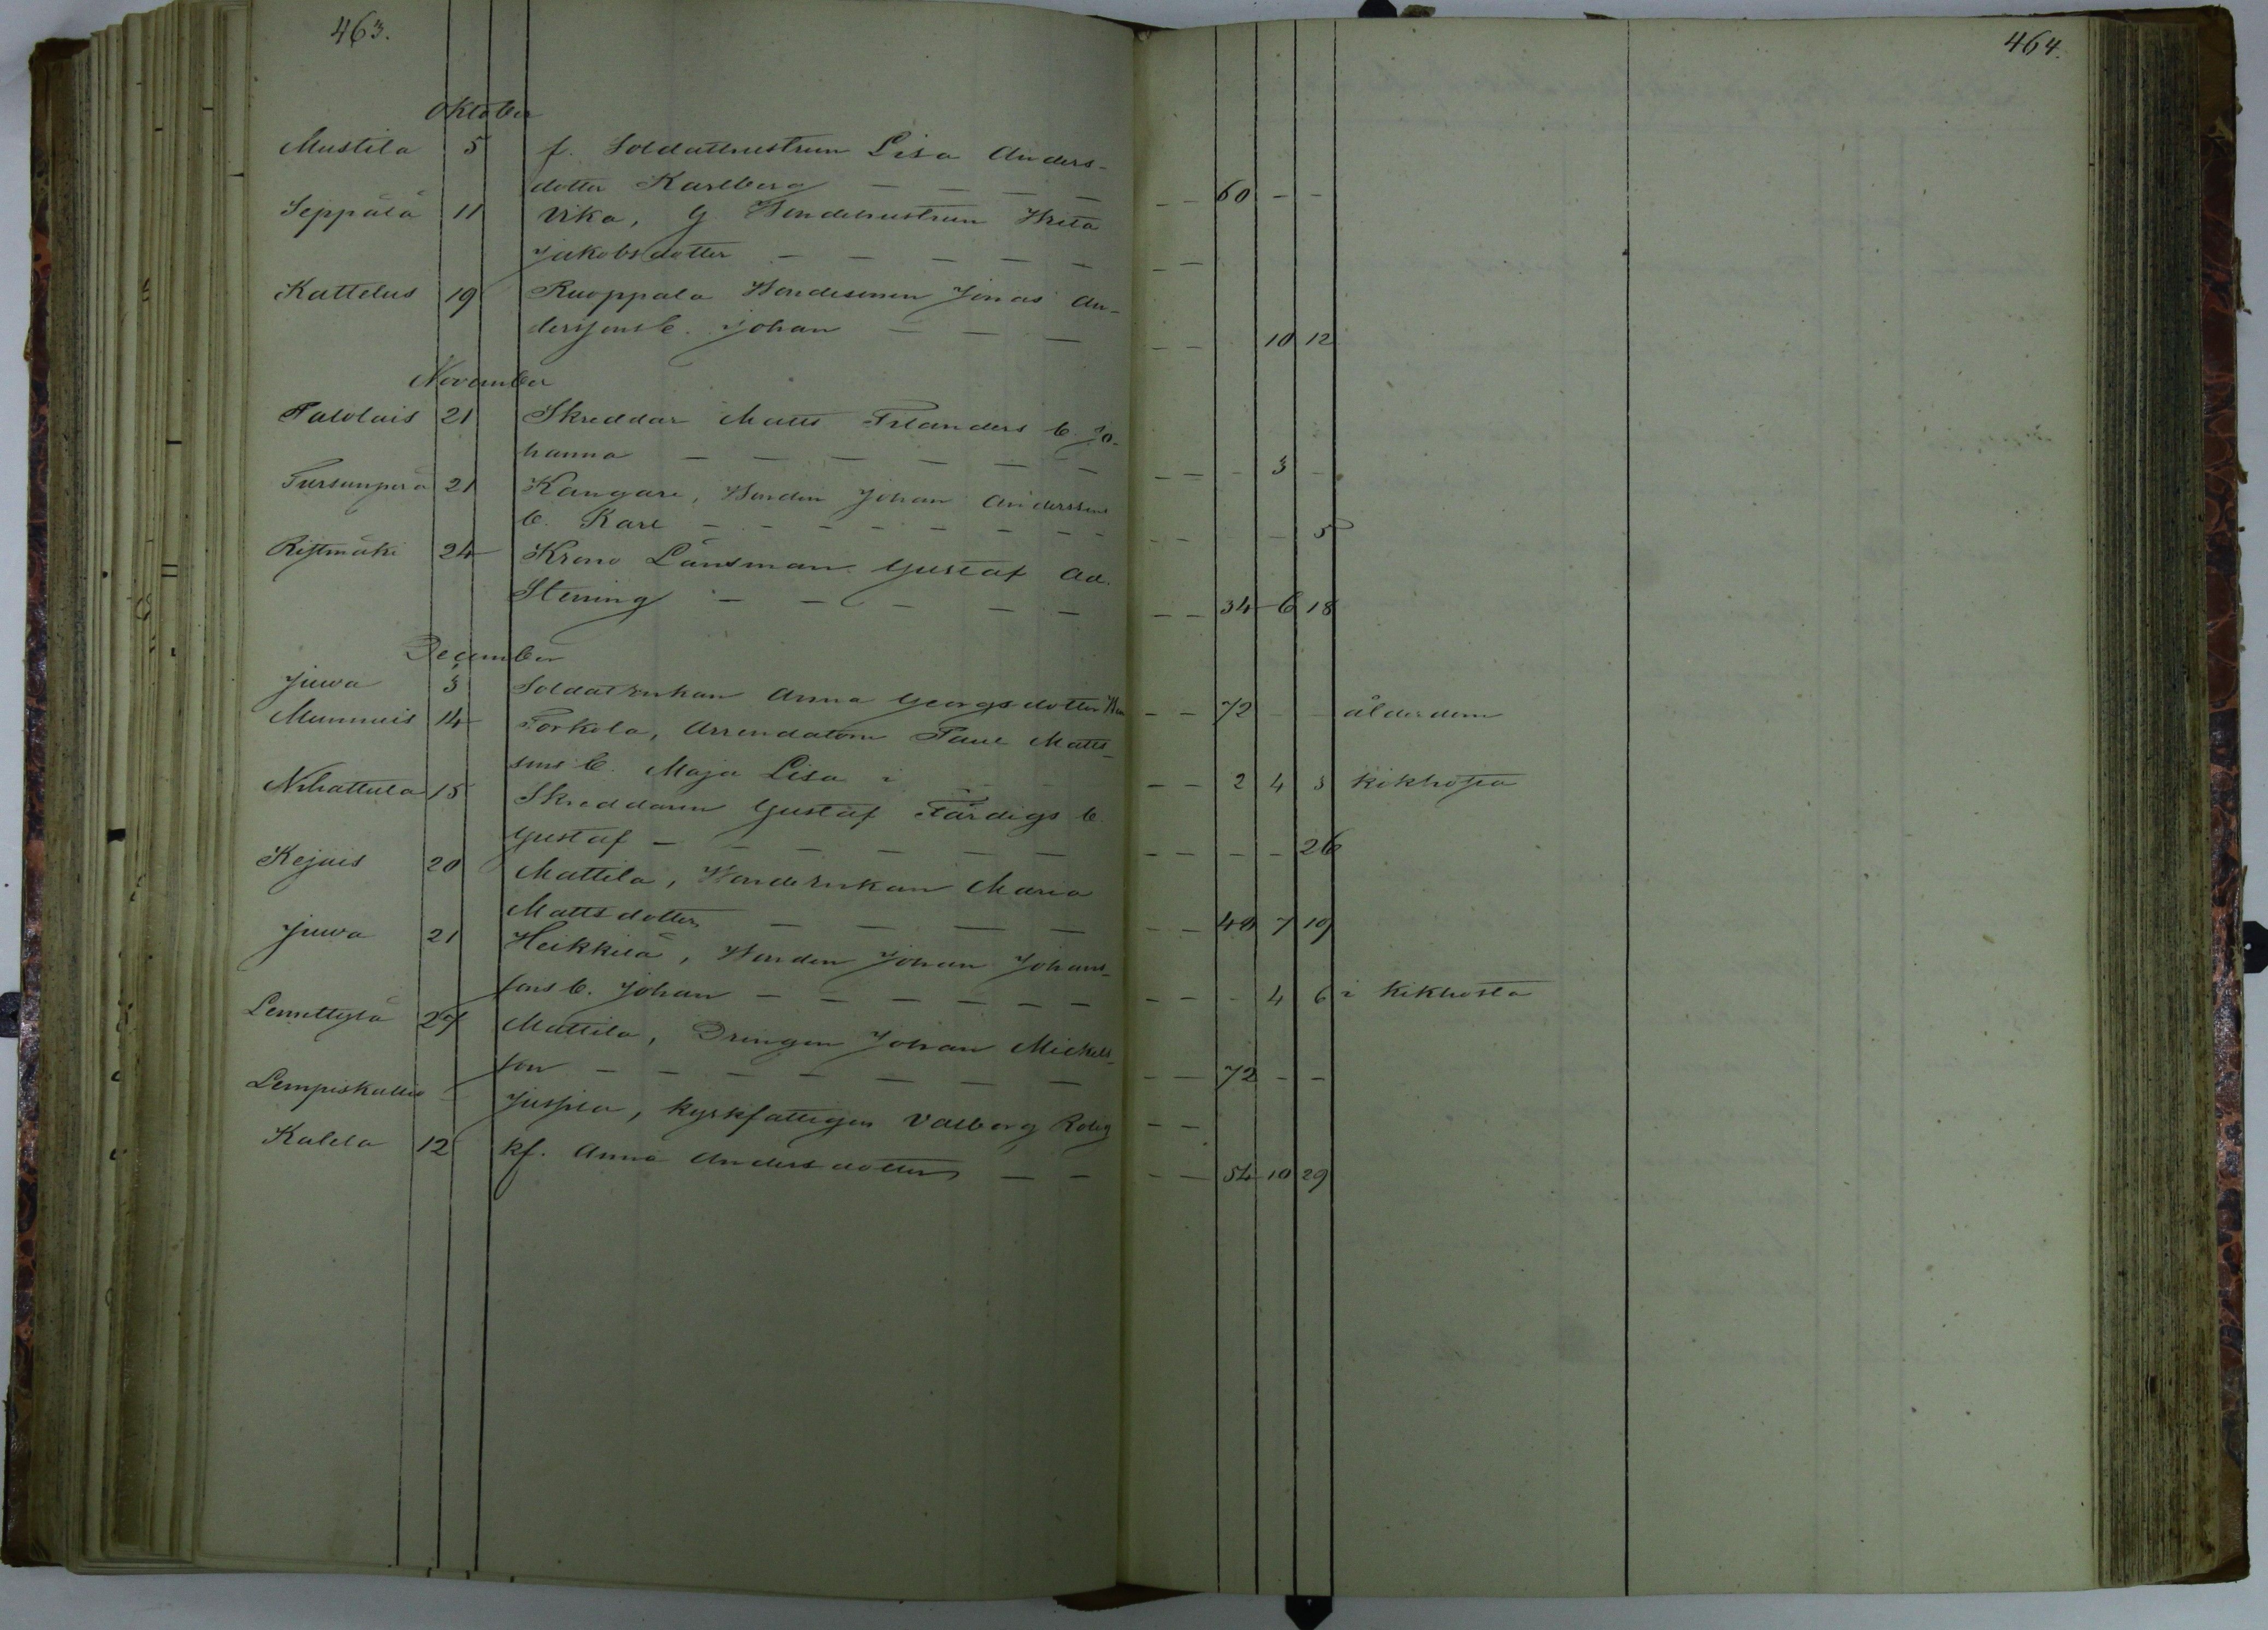 463.
464.
Oktober
Mustila 5 f. Soldathustrun Lisa Anders-
dotter Karlberg — — — — — 60 — —
Seppälä 11 Vika, g. Bondehustrun Brita
Jakobsdotter — — — — — — —
Kattelus 19 Ruoppala Bondesonen Jonas An-
derssons b. Johan — — — — — 10 12
November
Palolais 21 Skreddar Matts Filanders b. Jo-
hanna — — — — — — — — — 3 —
Tursunperä 21 Kangare, Bonden Johan Anderssons
b. Karl — — — — — — — — — — 5
Ristmäki 24 Krono Länsman Gustaf Ad.
Stening — — — — — — — 34 6 18
December
Juwa 3 Soldatenkan Anna Georgsdotter — — 72 — — ålderdom
Mummis 14 Porkola, Arrendatorn Paul Matts-
sons b. Maja Lisa — — 2 4 3 kikhosta
N.hattula 15 Skreddaren Gustaf Färdigs b.
Gustaf — — — — — — — — — — 26
Kejais 20 Mattila, Bondenkan Maria
Mattsdotter — — — — — — 48 7 19
Juwa 21 Heikkilä, Bonden Johan Johans-
sons b. Johan — — — — — — — — — 4 6 i kikhosta
Lemettylä 27 Mattila, Drängen Johan Mickels-
son — — — — — — — — — 72 — —
Lempiskallio — Jussila, kyrkfattigen Valborg Rolig — —
Kalela 12 kf. Anna Andersdotter — — — — 54 10 29